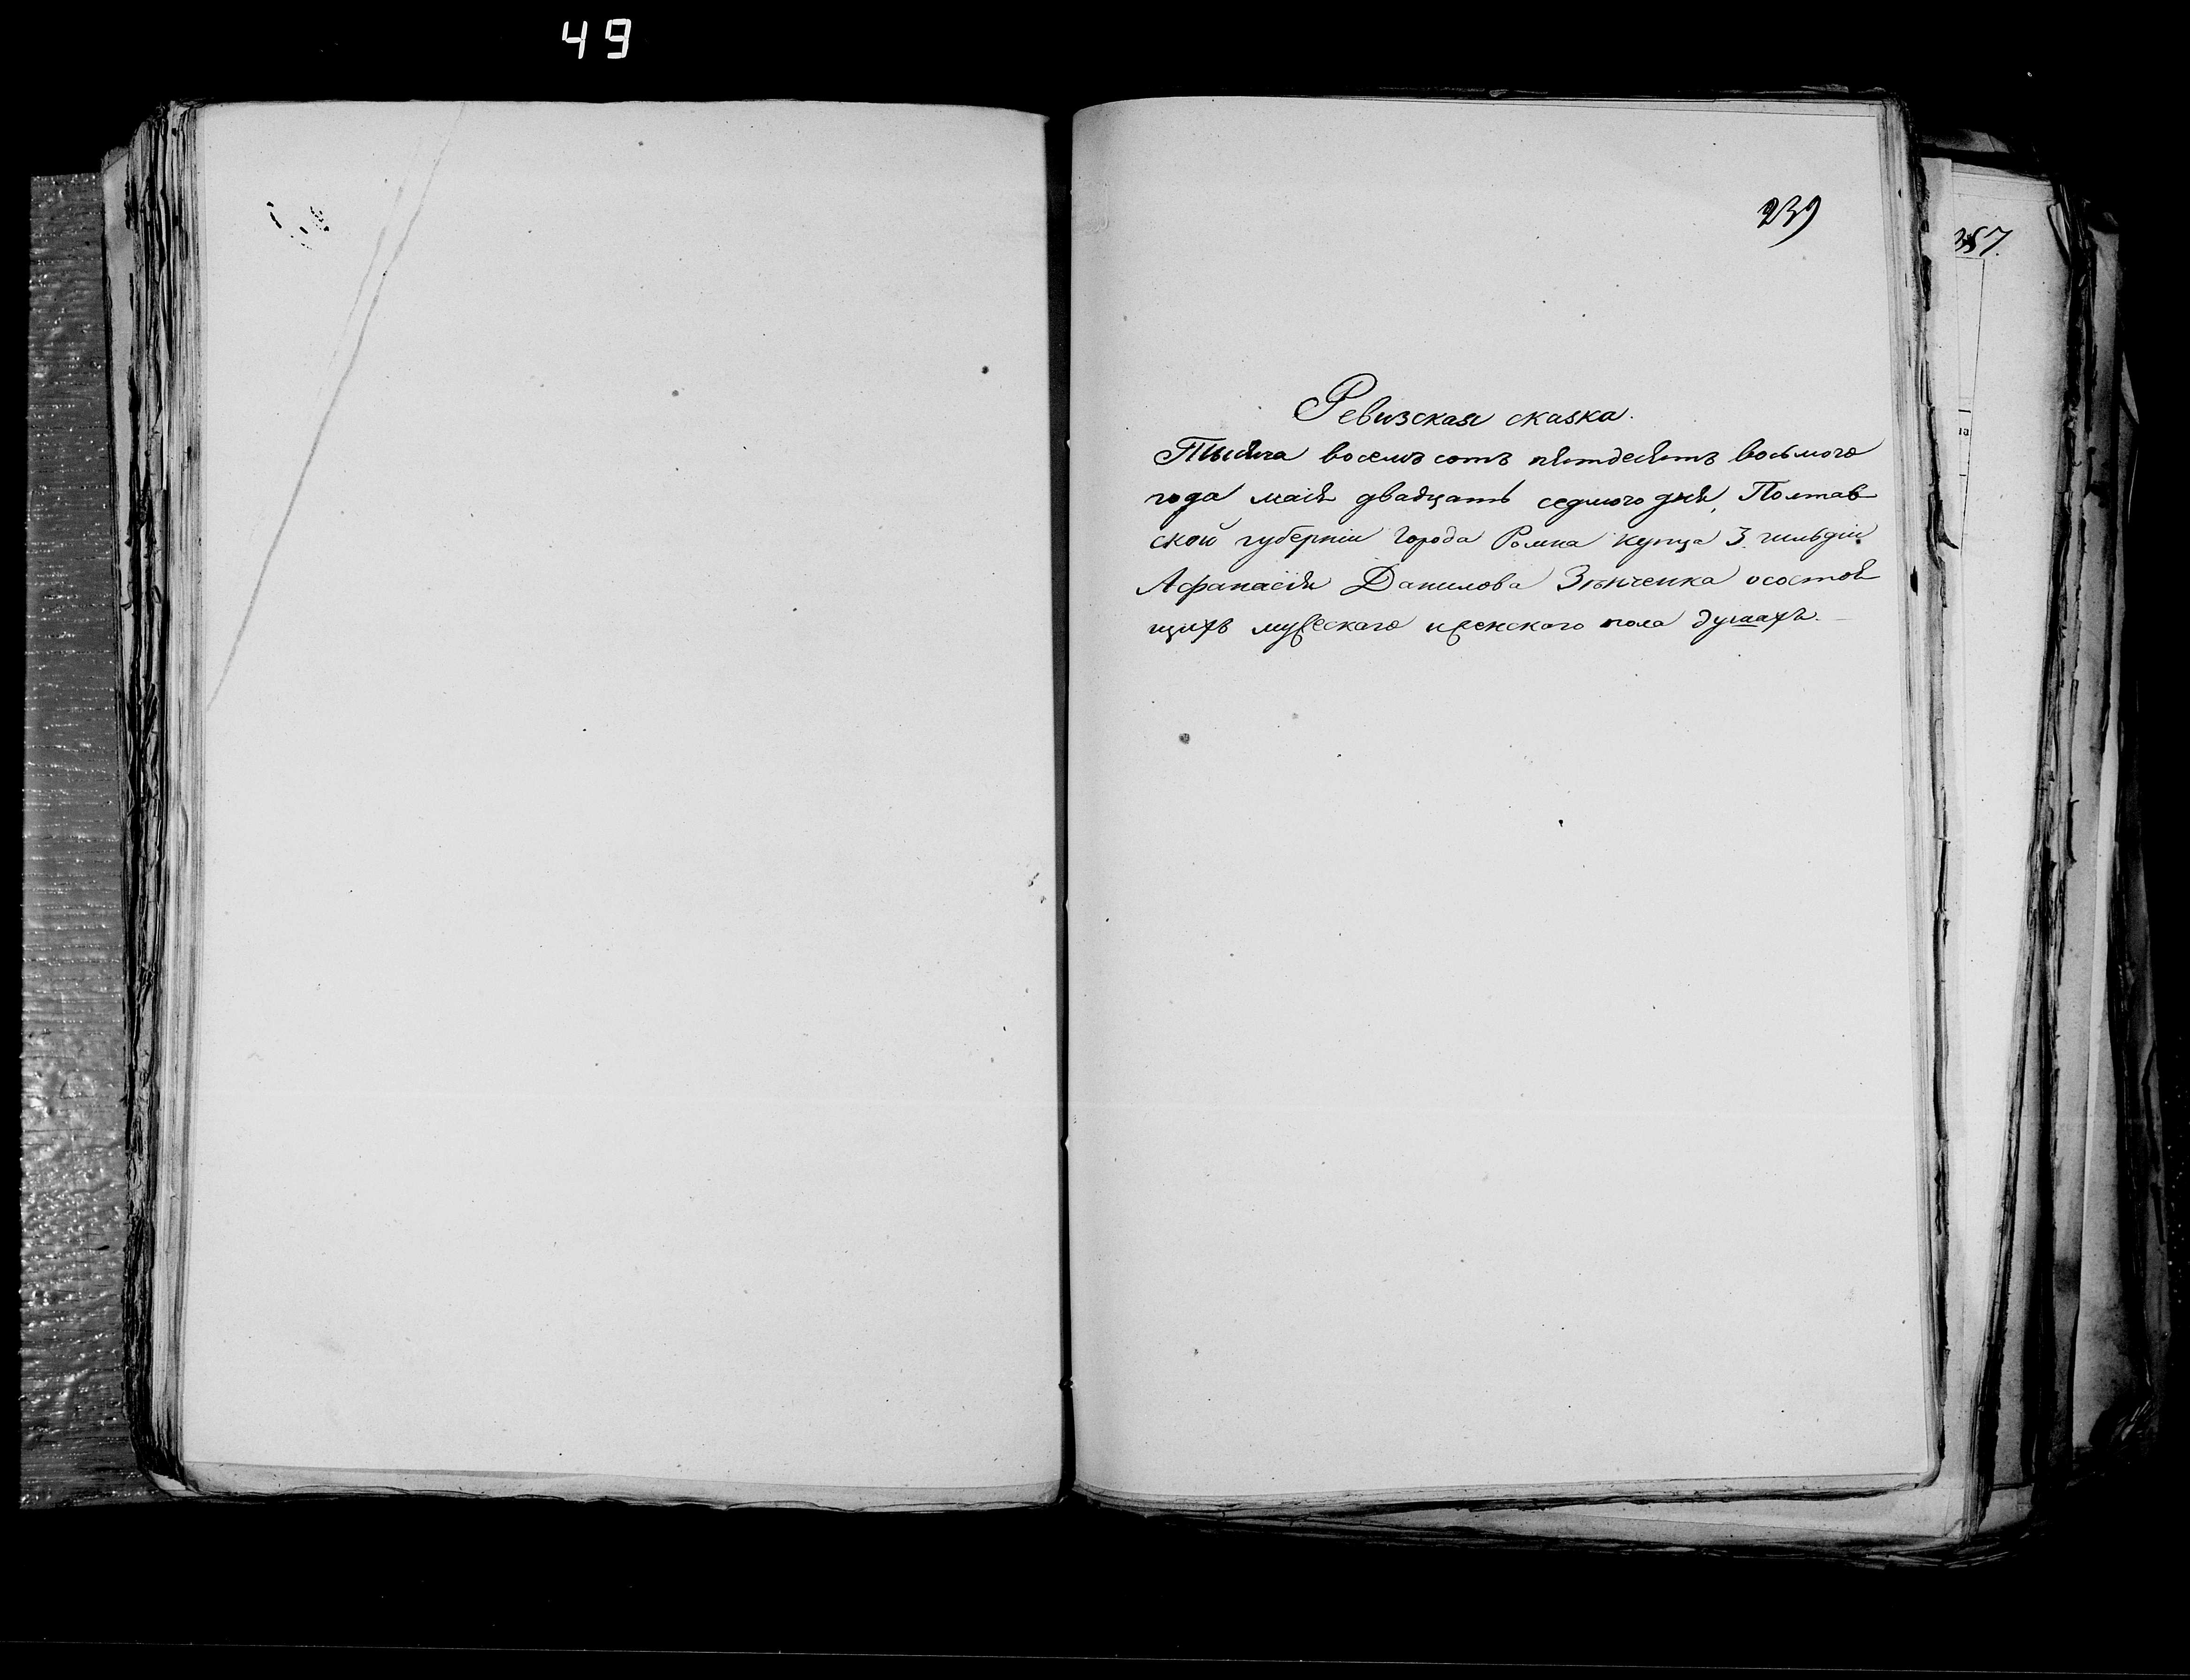 49
239
357.
Ревизская сказка.
Тысяча восемъ сотъ пятдесятъ восьмого
года маія двадцать седмого дня, Полтав
ской губерніи Города Ромна купца 3. гильдіи
Афанасія Данилова Зѣнченка осостоя
щихъ мужескаго иженского пола душахъ.